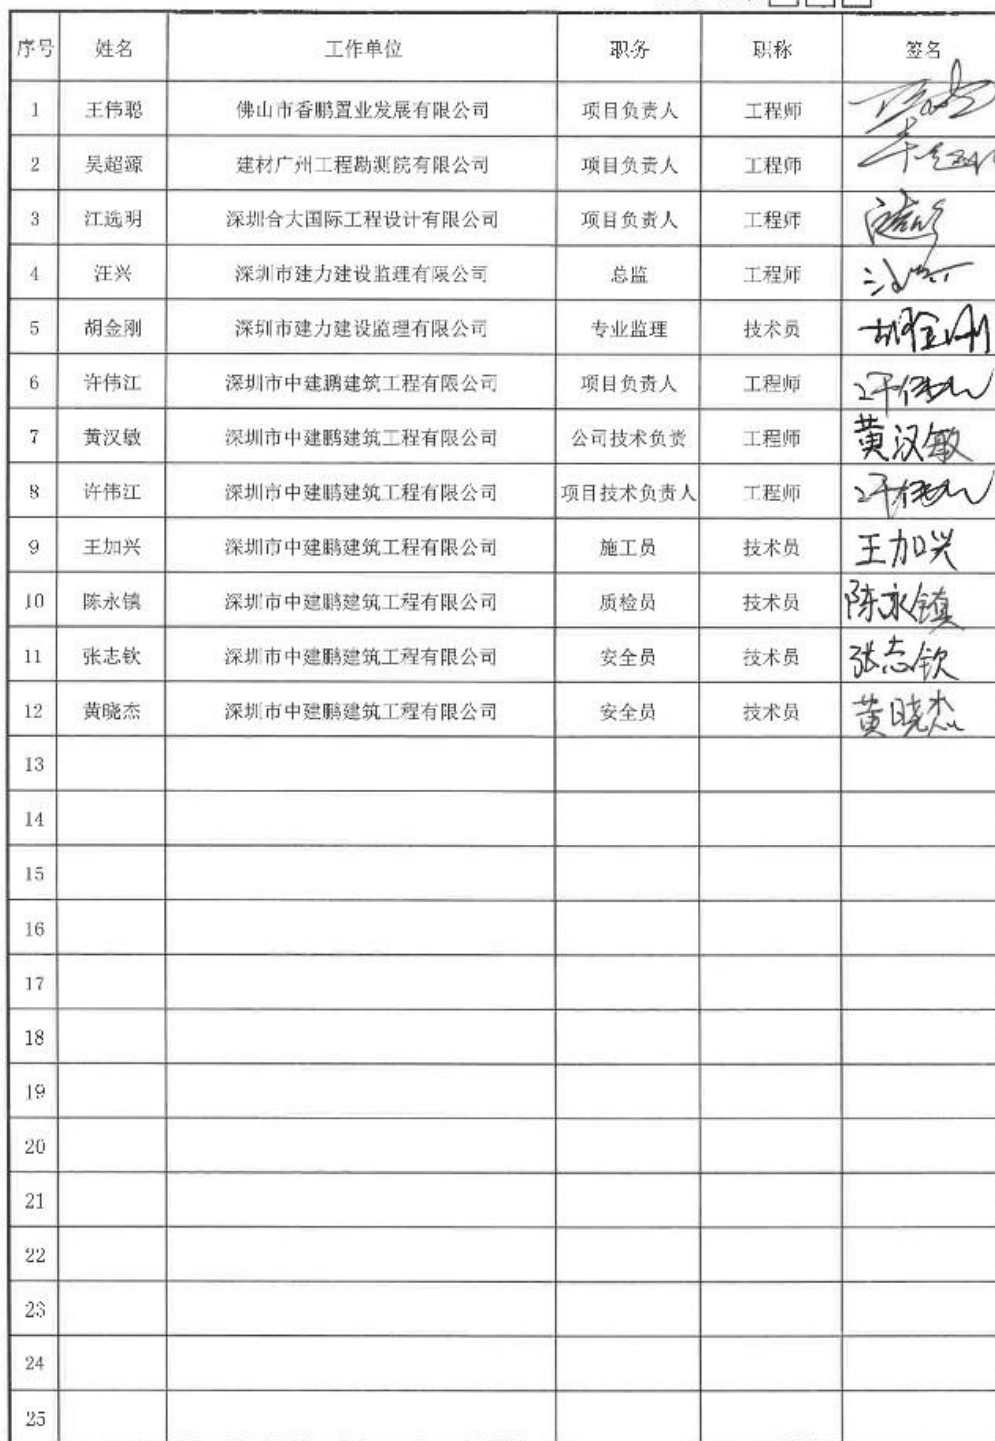 序号 姓名 工作单位 职务 职称 签名
1 王伟聪 佛山市香鹏置业发展有限公司 项目负责人 工程师
2 吴超源 建材广州工程勘测院有限公司 项目负责人 工程师
3 江选明 深圳合大国际工程设计有限公司 项目负责人 工程师
4 汪兴 深圳市建力建设监理有限公司 总监 工程师
5 胡金刚 深圳市建力建设监理有限公司 专业监理 技术员 胡金刚
6 许伟江 深圳市中建鹏建筑工程有限公司 项目负责人 工程师 许伟江
7 黄汉敏 深圳市中建鹏建筑工程有限公司 公司技术负责 工程师 黄汉敏
8 许伟江 深圳市中建鹏建筑工程有限公司 项目技术负责人 工程师 许伟江
9 王加兴 深圳市中建鹏建筑工程有限公司 施工员 技术员 王加兴
10 陈永镇 深圳市中建鹏建筑工程有限公司 质检员 技术员 陈永镇
11 张志钦 深圳市中建鹏建筑工程有限公司 安全员 技术员 张志钦
12 黄晓杰 深圳市中建鹏建筑工程有限公司 安全员 技术员 黄晓杰
13
14
15
16
17
18
19
20
21
22
23
24
25